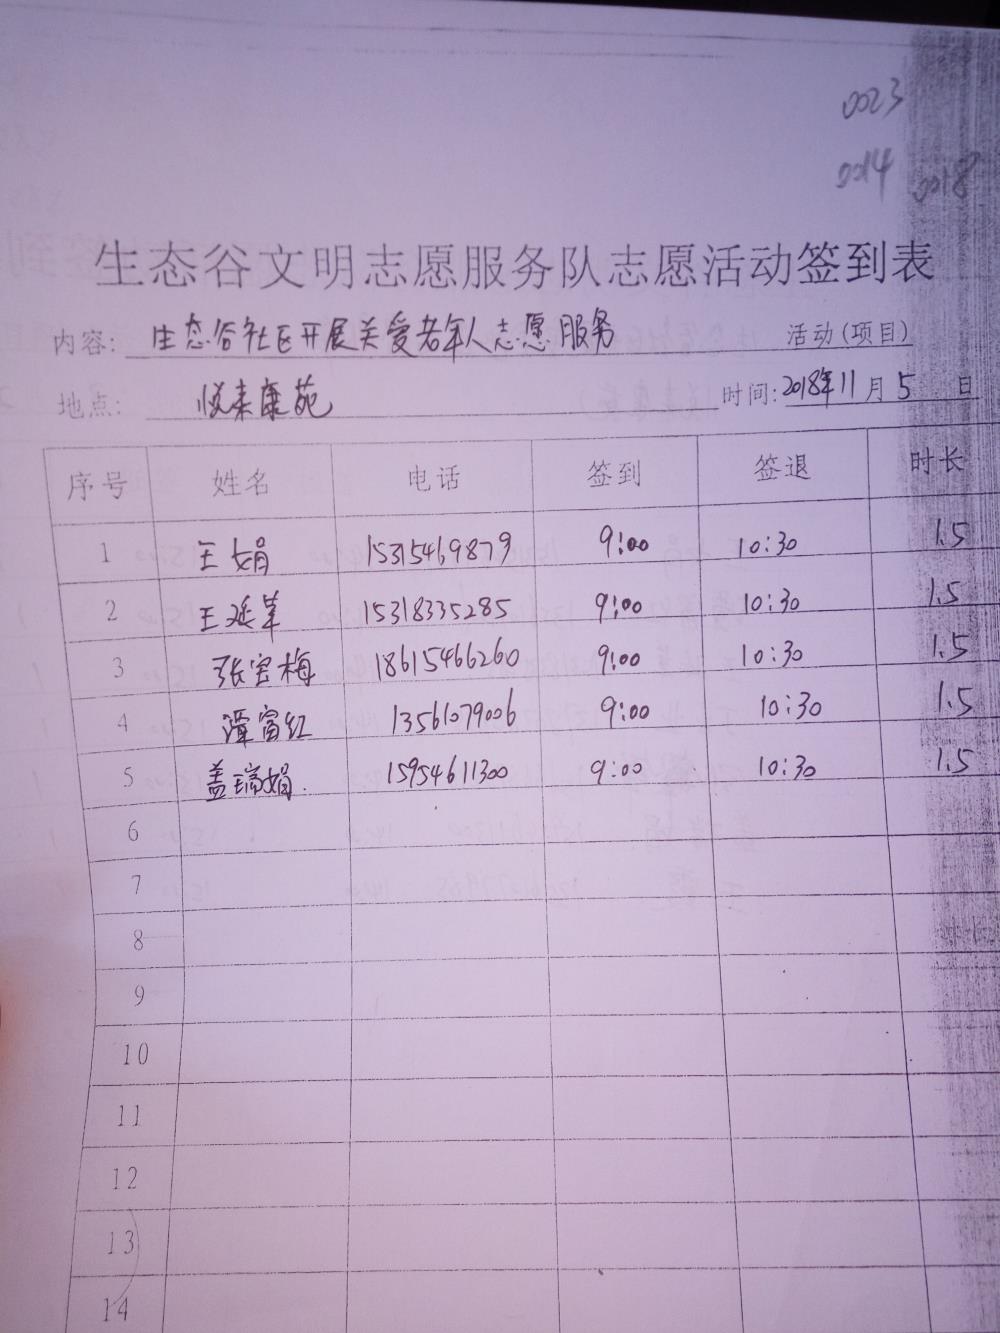 0023
0014 0018
生态谷文明志愿服务队志愿活动签到表
内容: 生态谷社区开展关爱老年人志愿服务 活动(项目)
地点: 悦来康苑 时间: 2018年11月5日
序号 姓名 电话 签到 签退 时长
1 王娟 15315469879 9:00 10:30 1.5
2 王延苹 15318335285 9:00 10:30 1.5
3 张宝梅 18615466260 9:00 10:30 1.5
4 谭富红 13561079006 9:00 10:30 1.5
5 盖瑞娟 15954611300 9:00 10:30 1.5
6
7
8
9
10
11
12
13
14